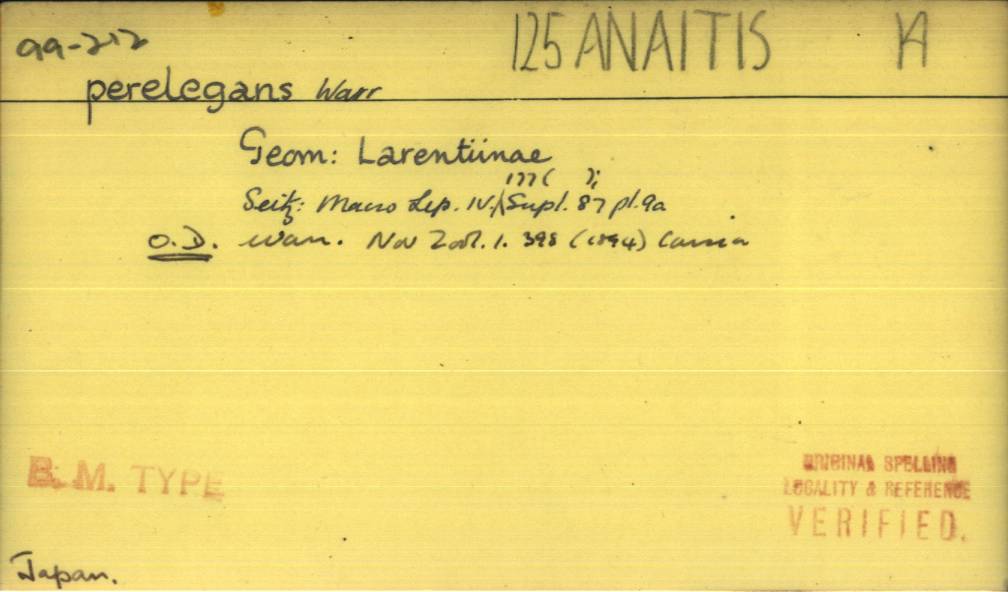 99-212
125 ANAITIS
perelegans Warr
Geom: Larentiinae
177( );
Seitz: Macro Lep. IV. Supl. 87 pl. 9a
O.D. Warr. Nov Zool. 1. 398 (1894) Carsia
B. M. TYPE
ORIGINAL SPELLING
LOCALITY & REFERENCE
VERIFIED.
Japan.